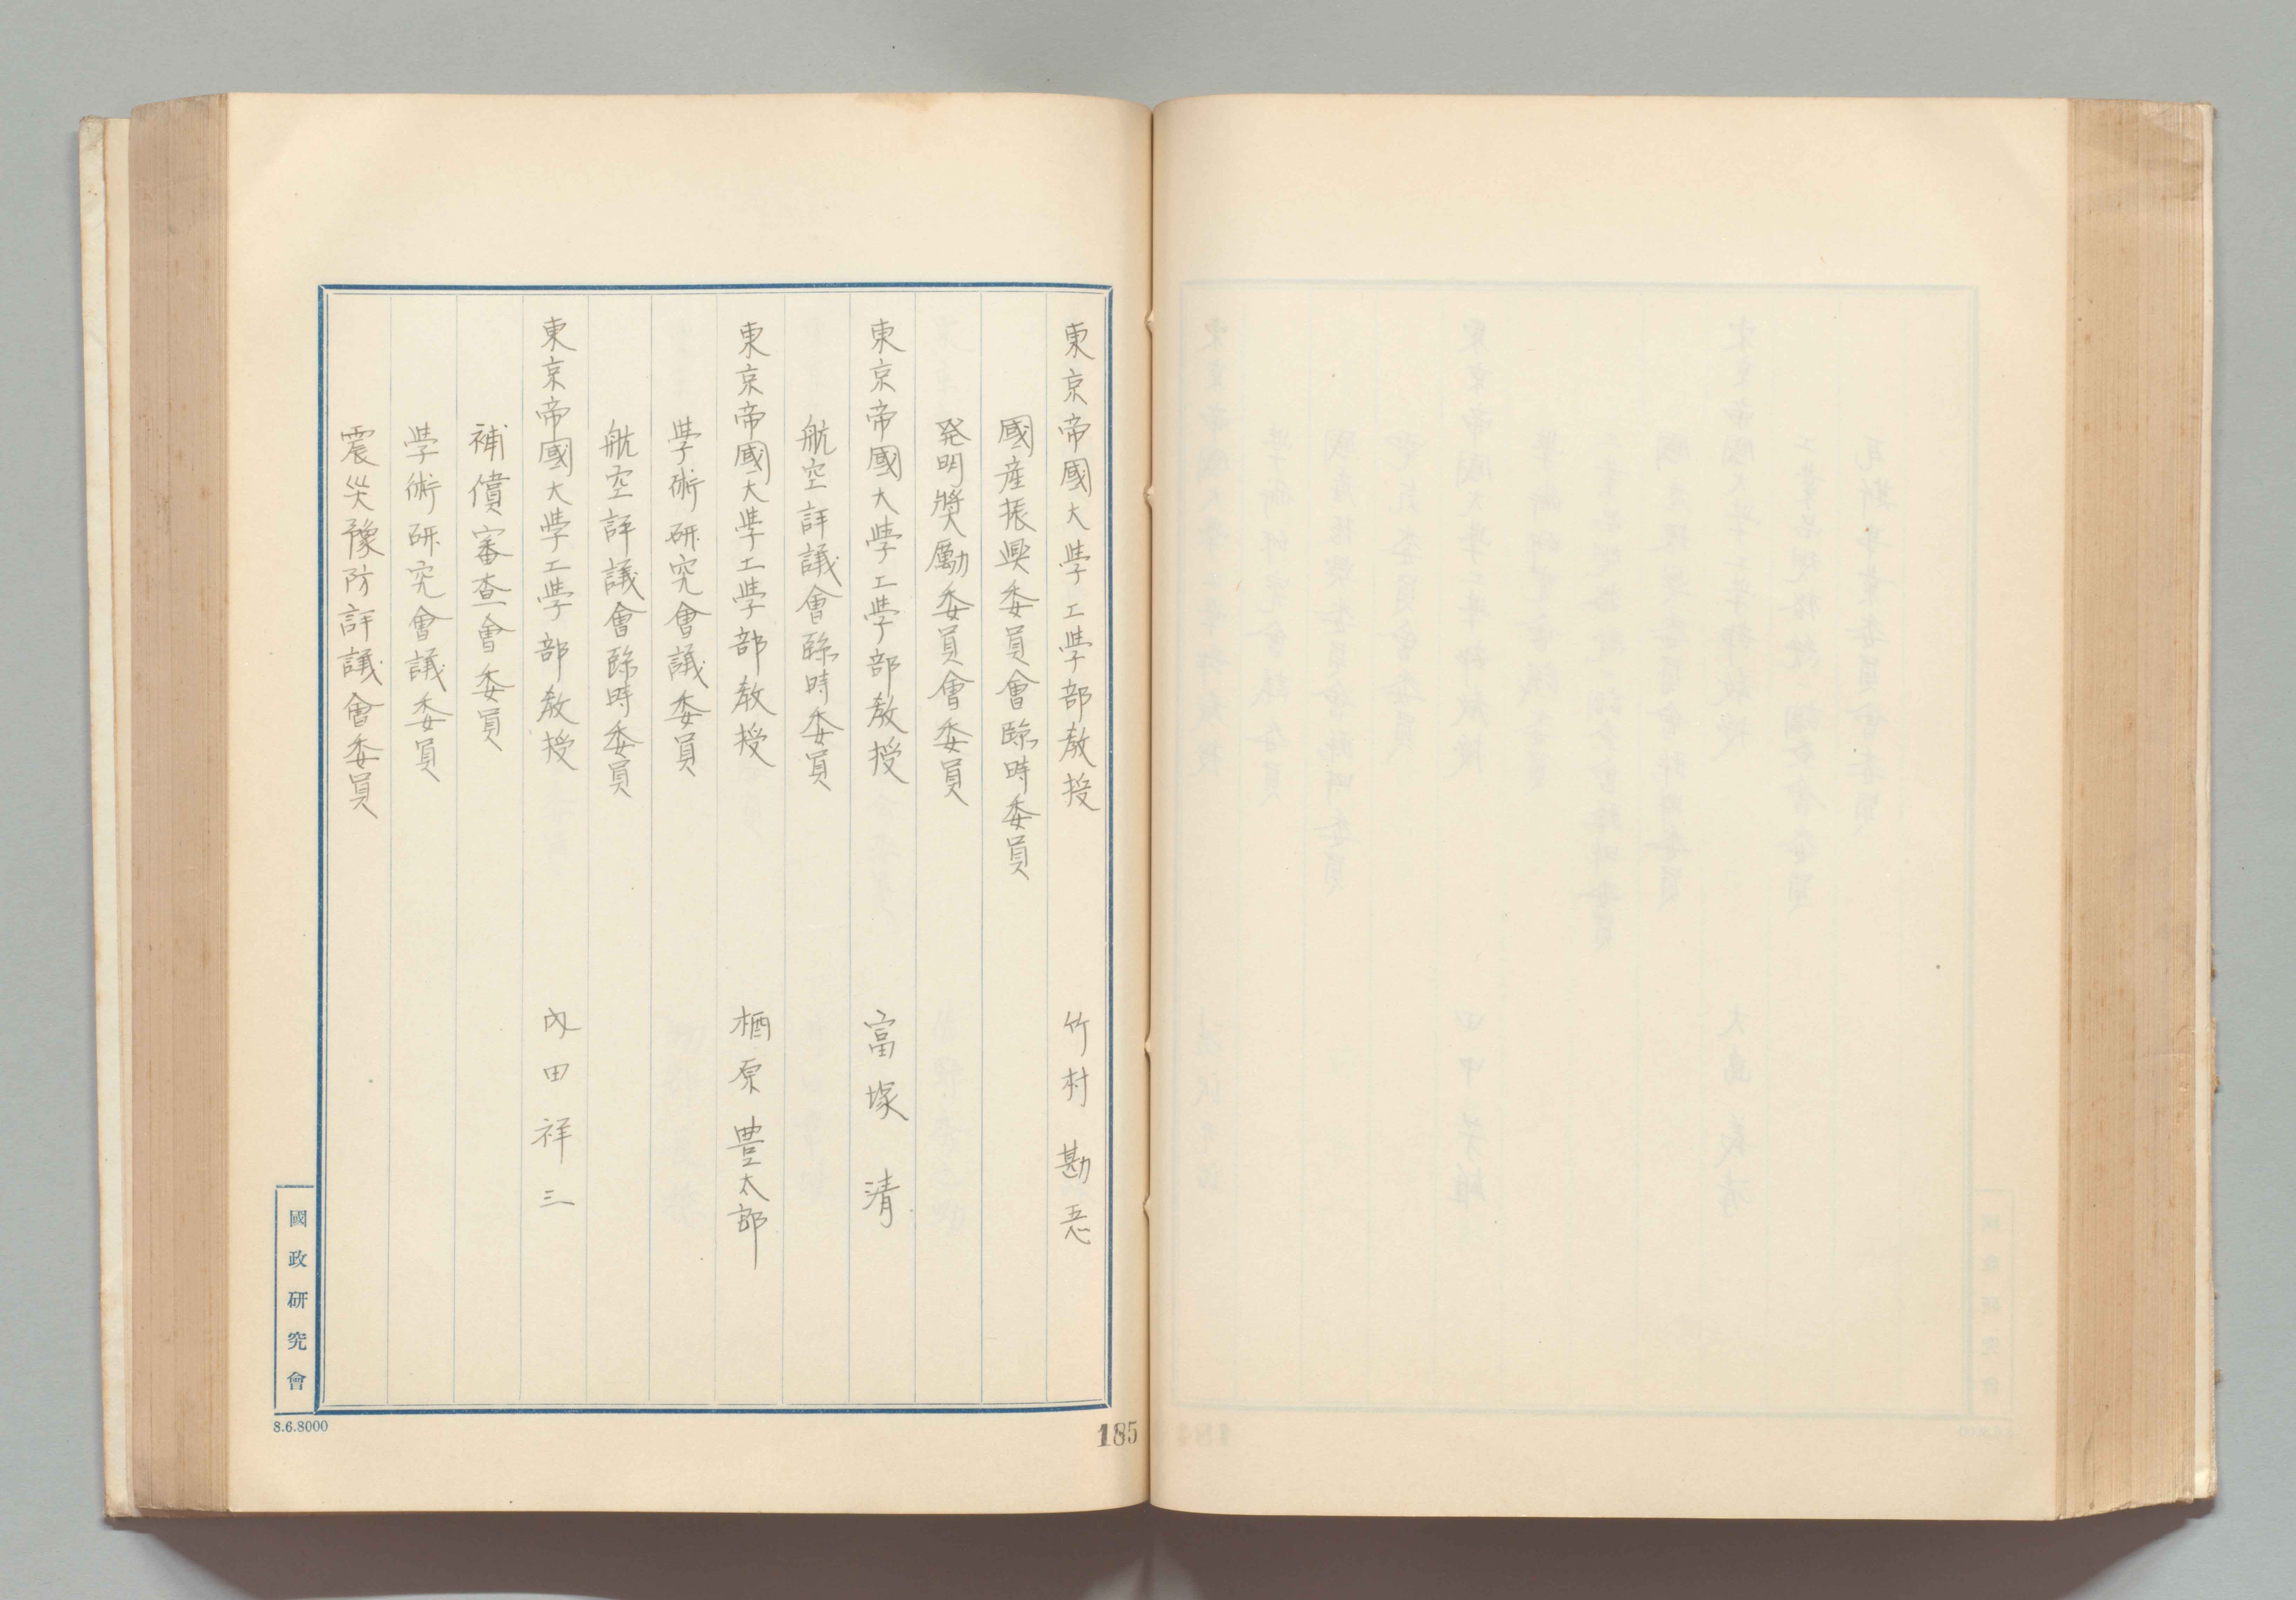 東京帝國大學工學部教授　竹村勘忢
國產振興委員會臨時委員
発明奬勵委員會委員
東京帝國大學工學部教授　富塚清
航空評議會臨時委員
東京帝國大學工學部教授　栖原豊太郎
學術研究會議委員
航空評議會臨時委員
東京帝國大學工學部教授　內田祥三
補償審査會委員
學術研究會議委員
震災豫防評議會委員
國政研究會
8.6.8000
185